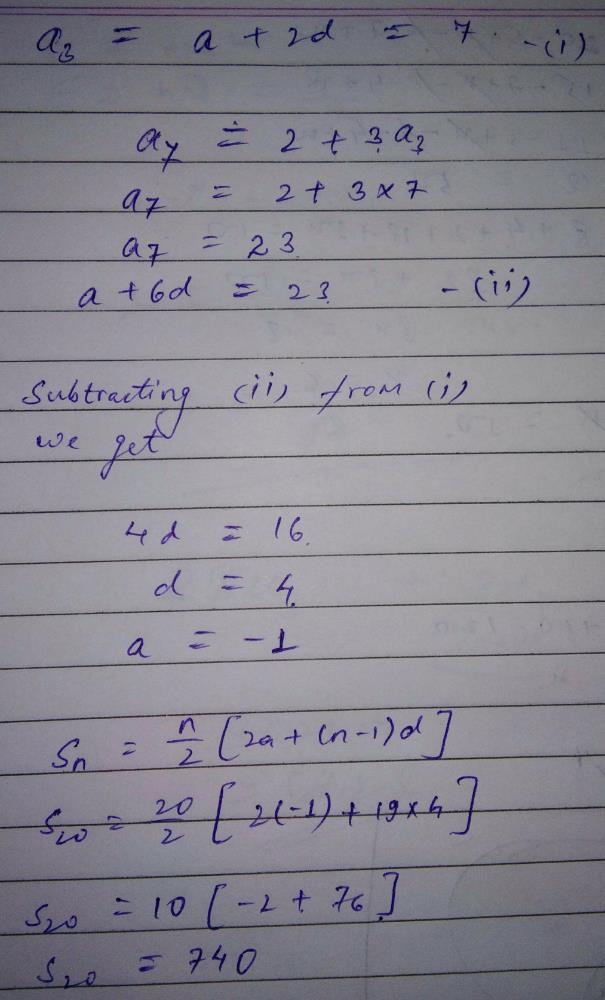 a₃ = a + 2d = 7 -(i)
a₇ = 2 + 3a₃
a₇ = 2 + 3 × 7
a₇ = 23
a + 6d = 23 -(ii)
Subtracting (ii) from (i)
we get
4d = 16
d = 4
a = -1
Sₙ = n/2 [2a + (n-1)d]
S₂₀ = 20/2 [2(-1) + 19×4]
S₂₀ = 10 [-2 + 76]
S₂₀ = 740